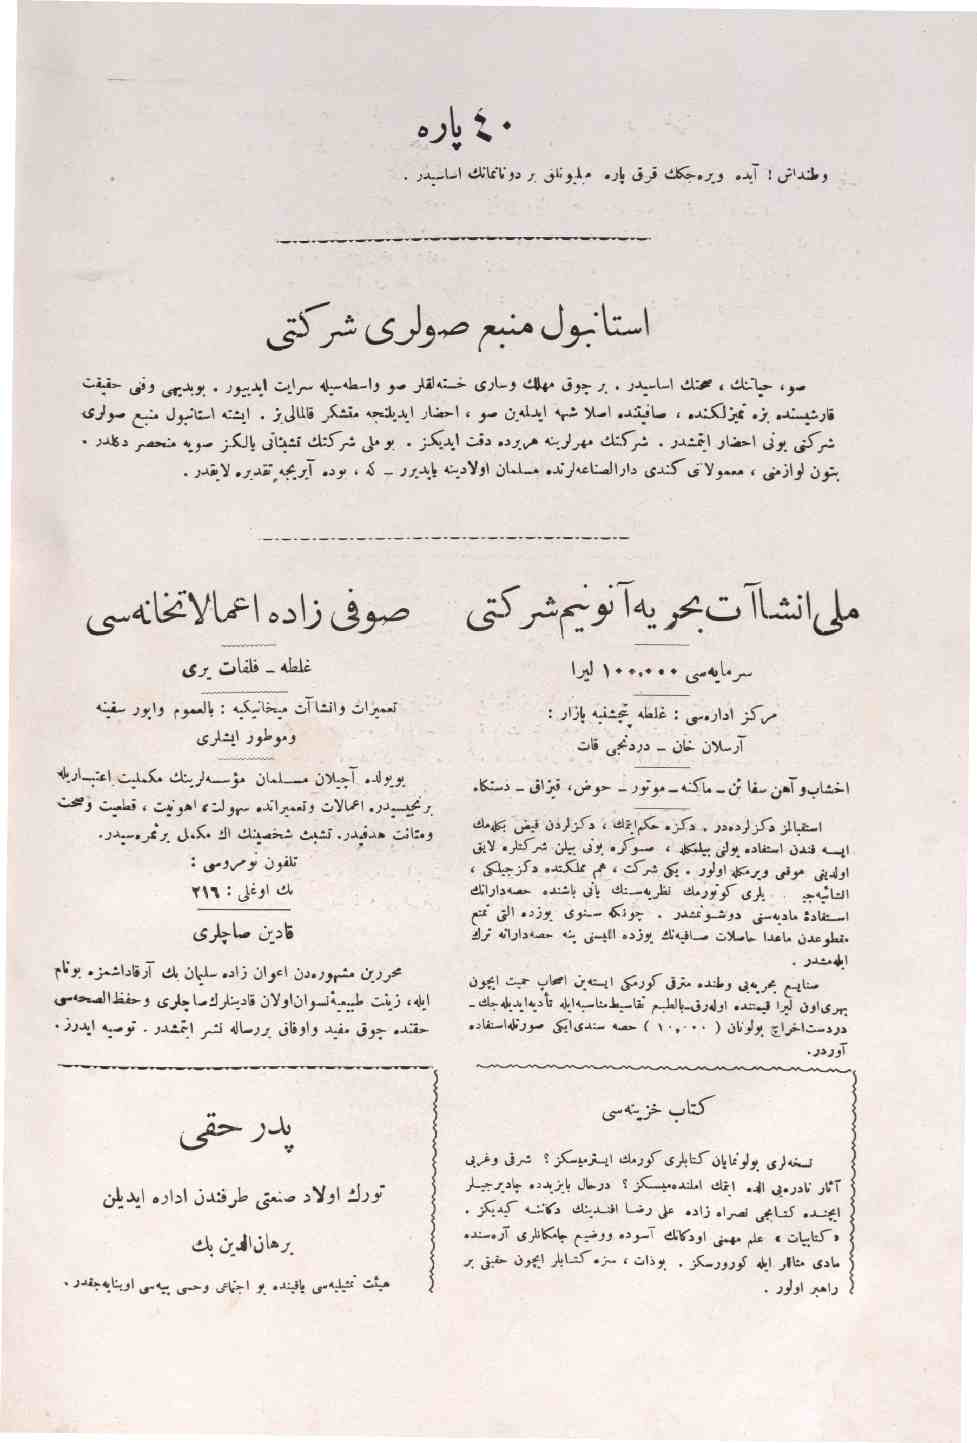 ٤٠ پاره
وطنداش ! آیده ویره‌جكك قرق پاره میلیونلق بر دونانمانك اساسیدر .
استانبول منبع صولری شركتی
صو، حیاتك ، صحتك اساسیدر . بر چوق مهلك وساری خسته‌لقلر صو واسطه‌سیله سرایت ایدییور . بوبدیهی وفنی حقیقت
قارشیسنده بزه تمیزلكنده ، صافیتنده اصلا شبهه ایدلمه‌ین صو ، احضار ایدیلنجه متشكر قالمالی‌یز . ایشته استانبول منبع صولری
شركتی بونی احضار ایتمشدر . شركتك مهرلرینه هربرده دقت ایدیكز . بو ملی شركتك تشبثاتی یالكز صویه منحصر دكلدر .
بتون لوازمنی ، معمولاتی كندی دارالصناعه‌لرنده مسلمان اولادینه یاپدیرر ـ كه ، بوده آیریجه تقدیره لایقدر .
ملی انشاآت بحریه آنونیم شركتی
سرمایه‌سی ١٠٠،٠٠٠ لیرا
مركز اداره‌سی : غلطه پنجشنبه بازار :
آرسلان خان ـ دردنجی قات
اخشاب و آهن سفائن ـ ماكنه ـ موتور ـ حوض، قیزاق ـ دستكاه
استقبالمز دكزلرده‌در . دكزه حكم ایتمك ، دكزلردن فیض بكله‌مك
ایسه فندن استفاده یولنی بیلمكله ، صوكره بونی بیلن شركتلره لایق
اولدیغی موقعی ویرمكله اولور . یكی شركت ، هم مملكتده دكزجیلكی ،
انشائیه‌جی یلری كوتورمك نظریه‌سنك یانی باشنده حصه‌دارانك
استفادهٔ مادیه‌سنی دوشونمشدر . چونكه سنوی یوزده التی تمتع
مقطوعدن ماعدا حاصلات صافیه‌نك یوزده اللیسنی ینه حصه‌دارانه ترك
ایله‌مشدر .
صنایع بحریه‌یی وطنده مترقی كورمكی ایسته‌ین اصحاب حمیت ایچون
بهری اون لیرا قیمتنده اوله‌رق بالطبع تقاسیط مناسبه ایله تأدیه ایدیله‌جك ـ
دردست اخراج بولونان ( ١٠,٠٠٠ ) حصه سندی ایكی صورتله استفاده
آوردر .
كتاب خزینه‌سی
نسخه‌لری بولونمایان كتابلری كورمك ایسترمیسكز ؟ شرقی وغربی
آثار نادره‌یی الده ایتمك املنده‌میسكز ؟ درحال بایزیدده چادیرجیلر
ایچنده كتابجی نصراه زاده علی رضا افندینك دكاننه كیدیكز .
« كتابیات » علم مهمنی اودكانك آسوده ووضیع جامكانلری آره‌سنده
مادی مثاللر ایله كورورسكز . بوذات ، سزه كتابلر ایچون حقیقی بر
راهبر اولور .
صوفی زاده اعمالاتخانه‌سی
غلطه ـ قلفات یری
تعمیرات وانشاآت میخانیكیه : بالعموم واپور سفینه
وموطور ایشلری
بویولده آچیلان مسلمان مؤسسه‌لرینك مكملیت اعتباریله
برنجیسیدر. اعمالات وتعمیراتده سهولت، اهونیت ، قطعیت وصحت
ومتانت هدفیدر. تشبث شخصینك اك مكمل برثمره‌سیدر.
تلفون نومروسی :
بك اوغلی : ٢١٦
قادین صاچلری
محررین مشهوره‌دن اعوان زاده سلیمان بك آرقاداشمزه بونام
ایله، زینت طبیعیهٔ نسوان اولان قادینلرك صاچلری وحفظ الصحه‌سی
حقنده چوق مفید واوفاق بررساله نشر ایتمشدر . توصیه ایدرز .
پدر حقی
تورك اولاد صنعتی طرفندن اداره ایدیلن
برهان‌الدین بك
هیئت تمثیلیه‌سی یاقینده بو اجتماعی وحسی پیه‌سی اوینایه‌جقدر .